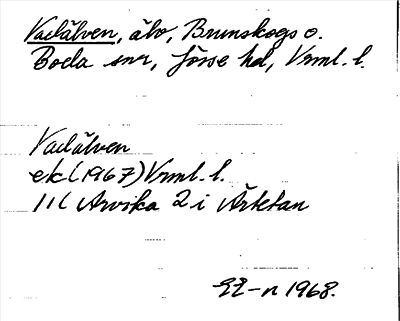 Vadälven, älv, Brunskogs o.
Boda snr, Jösse hd, Vrml. l.
Vadälven
ek (1967) Vrml. l.
11C Arvika 2 i Ärtetan
EE-n 1968.